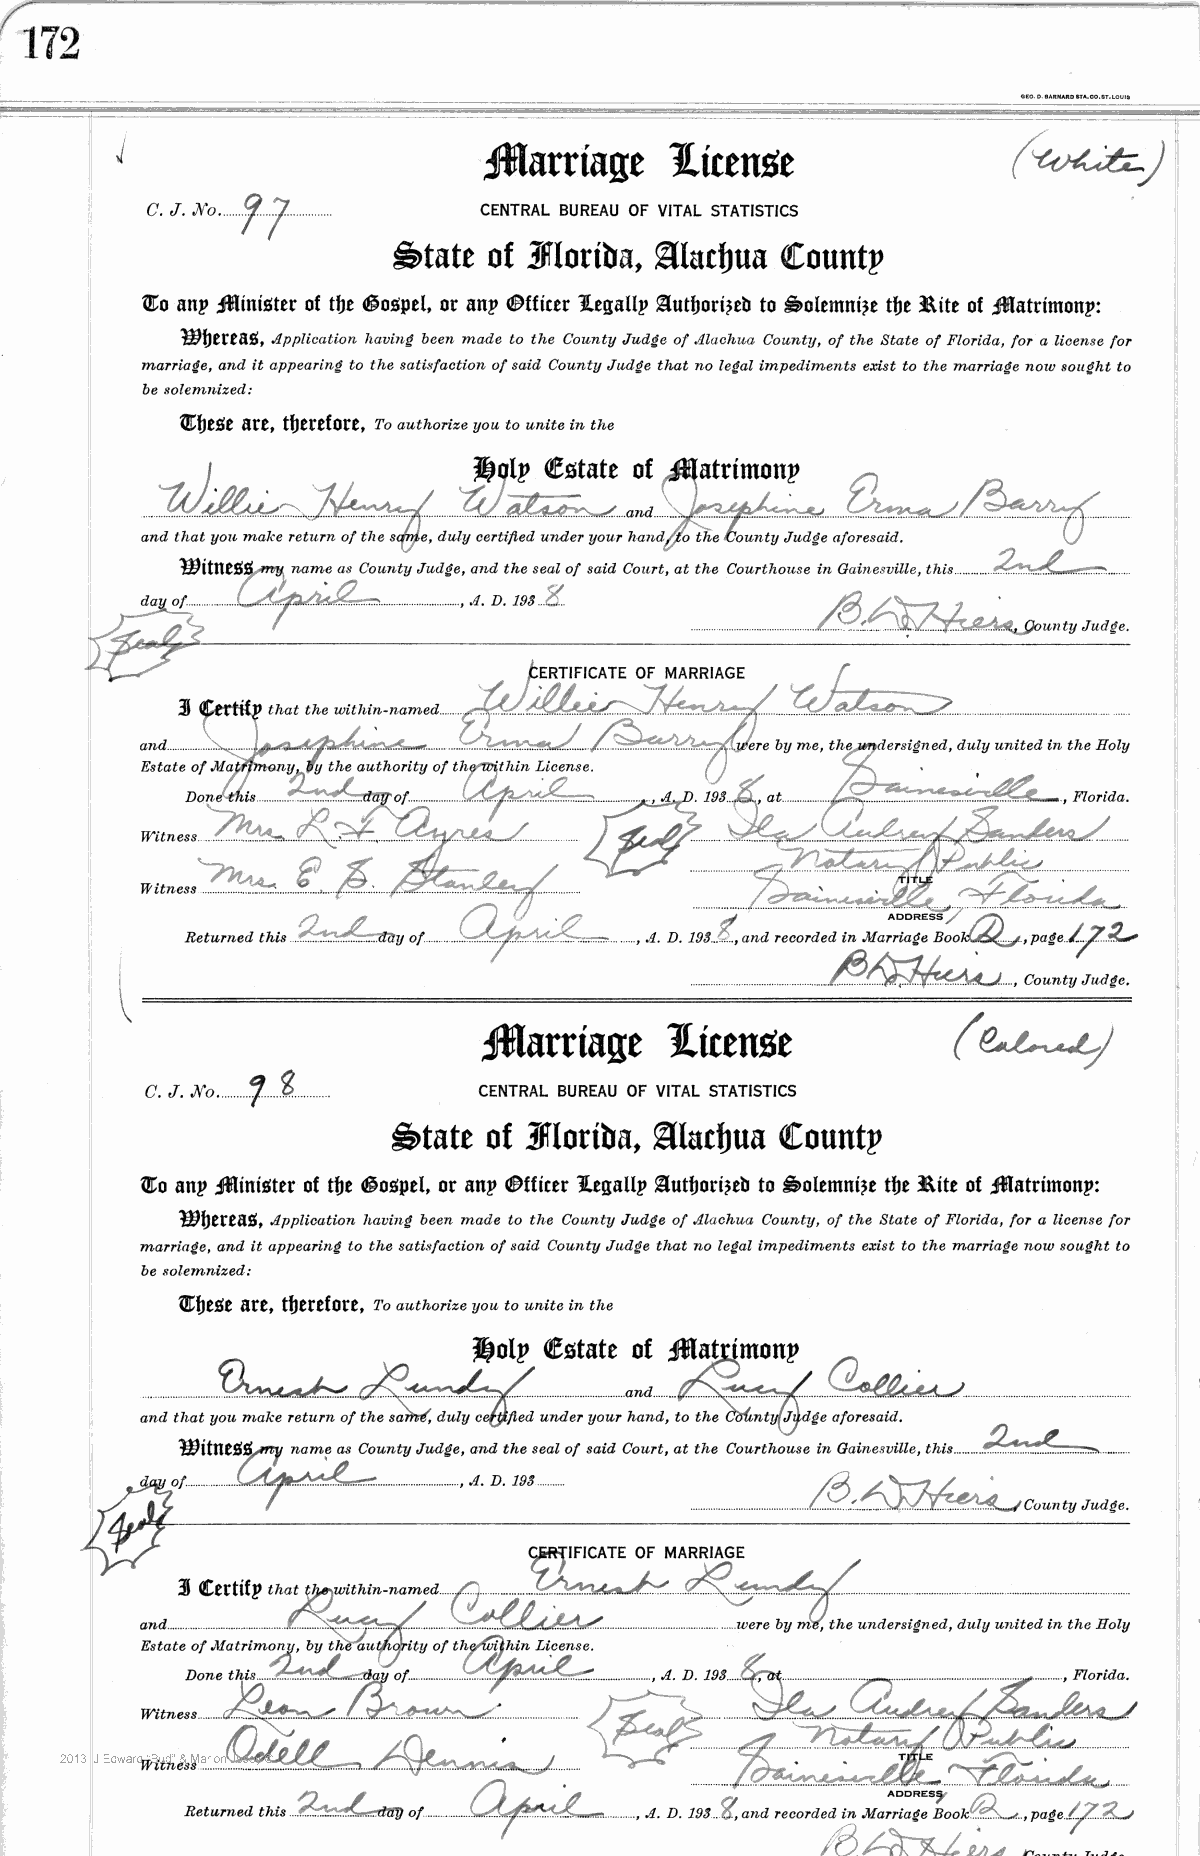 172
GEO. D. BARNARD STA. CO. ST. LOUIS
Marriage License (White)
C. J. No. 97 CENTRAL BUREAU OF VITAL STATISTICS
State of Florida, Alachua County
To any Minister of the Gospel, or any Officer Legally Authorized to Solemnize the Rite of Matrimony:
Whereas, Application having been made to the County Judge of Alachua County, of the State of Florida, for a license for
marriage, and it appearing to the satisfaction of said County Judge that no legal impediments exist to the marriage now sought to
be solemnized:
These are, therefore, To authorize you to unite in the
Holy Estate of Matrimony
Willie Henry Watson and Josephine Erma Barry
and that you make return of the same, duly certified under your hand, to the County Judge aforesaid.
Witness my name as County Judge, and the seal of said Court, at the Courthouse in Gainesville, this 2nd
day of April, A. D. 1938
B. D. Hiers, County Judge.
Seal
CERTIFICATE OF MARRIAGE
I Certify that the within-named Willie Henry Watson
and Josephine Erma Barry were by me, the undersigned, duly united in the Holy
Estate of Matrimony, by the authority of the within License.
Done this 2nd day of April, A. D. 1938, at Gainesville, Florida.
Witness Mrs. L. F. Ayres Seal Ila Audrey Sanders
Notary Public
TITLE
Witness Mrs. E. S. Stanley Gainesville, Florida
ADDRESS
Returned this 2nd day of April, A. D. 1938, and recorded in Marriage Book R, page 172
B D Hiers, County Judge.
Marriage License (Colored)
C. J. No. 98 CENTRAL BUREAU OF VITAL STATISTICS
State of Florida, Alachua County
To any Minister of the Gospel, or any Officer Legally Authorized to Solemnize the Rite of Matrimony:
Whereas, Application having been made to the County Judge of Alachua County, of the State of Florida, for a license for
marriage, and it appearing to the satisfaction of said County Judge that no legal impediments exist to the marriage now sought to
be solemnized:
These are, therefore, To authorize you to unite in the
Holy Estate of Matrimony
Ernest Lundy and Lucy Collier
and that you make return of the same, duly certified under your hand, to the County Judge aforesaid.
Witness my name as County Judge, and the seal of said Court, at the Courthouse in Gainesville, this 2nd
day of April, A. D. 193
B. D. Hiers, County Judge.
Seal
CERTIFICATE OF MARRIAGE
I Certify that the within-named Ernest Lundy
and Lucy Collier were by me, the undersigned, duly united in the Holy
Estate of Matrimony, by the authority of the within License.
Done this 2nd day of April, A. D. 1938, at , Florida.
Witness Leon Brown Seal Ila Audrey Sanders
Notary Public
TITLE
2013 J Edward "Bud" & Marion
Witness Odell Dennis Gainesville, Florida
ADDRESS
Returned this 2nd day of April, A. D. 1938, and recorded in Marriage Book R, page 172
B. D. Hiers, County Judge.